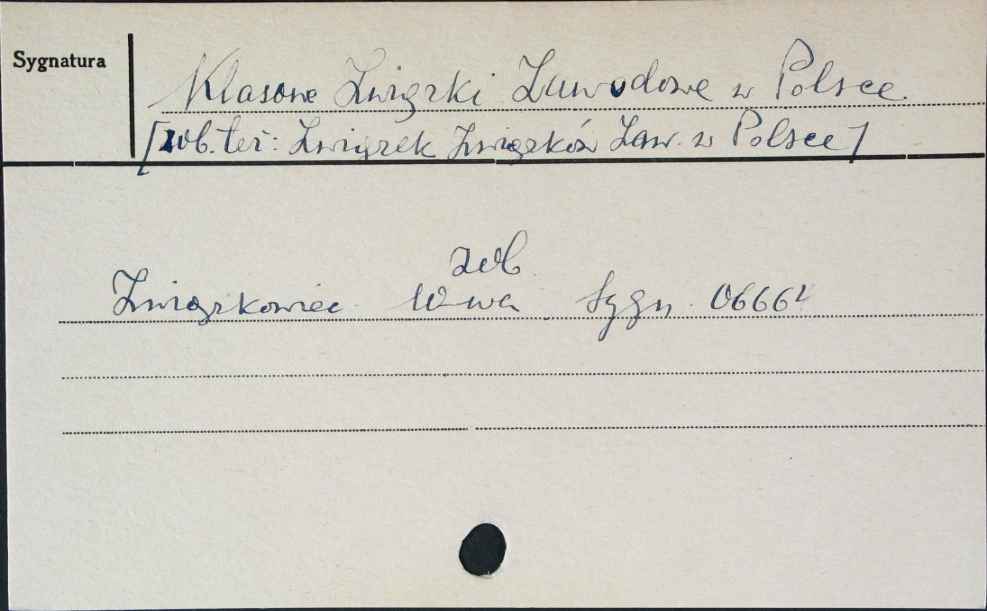 Sygnatura
Klasowe Związki Zawodowe w Polsce.
[zob. też: Związek Związków Zaw. w Polsce]
zob.
Związkowiec W-wa Sygn. 06662